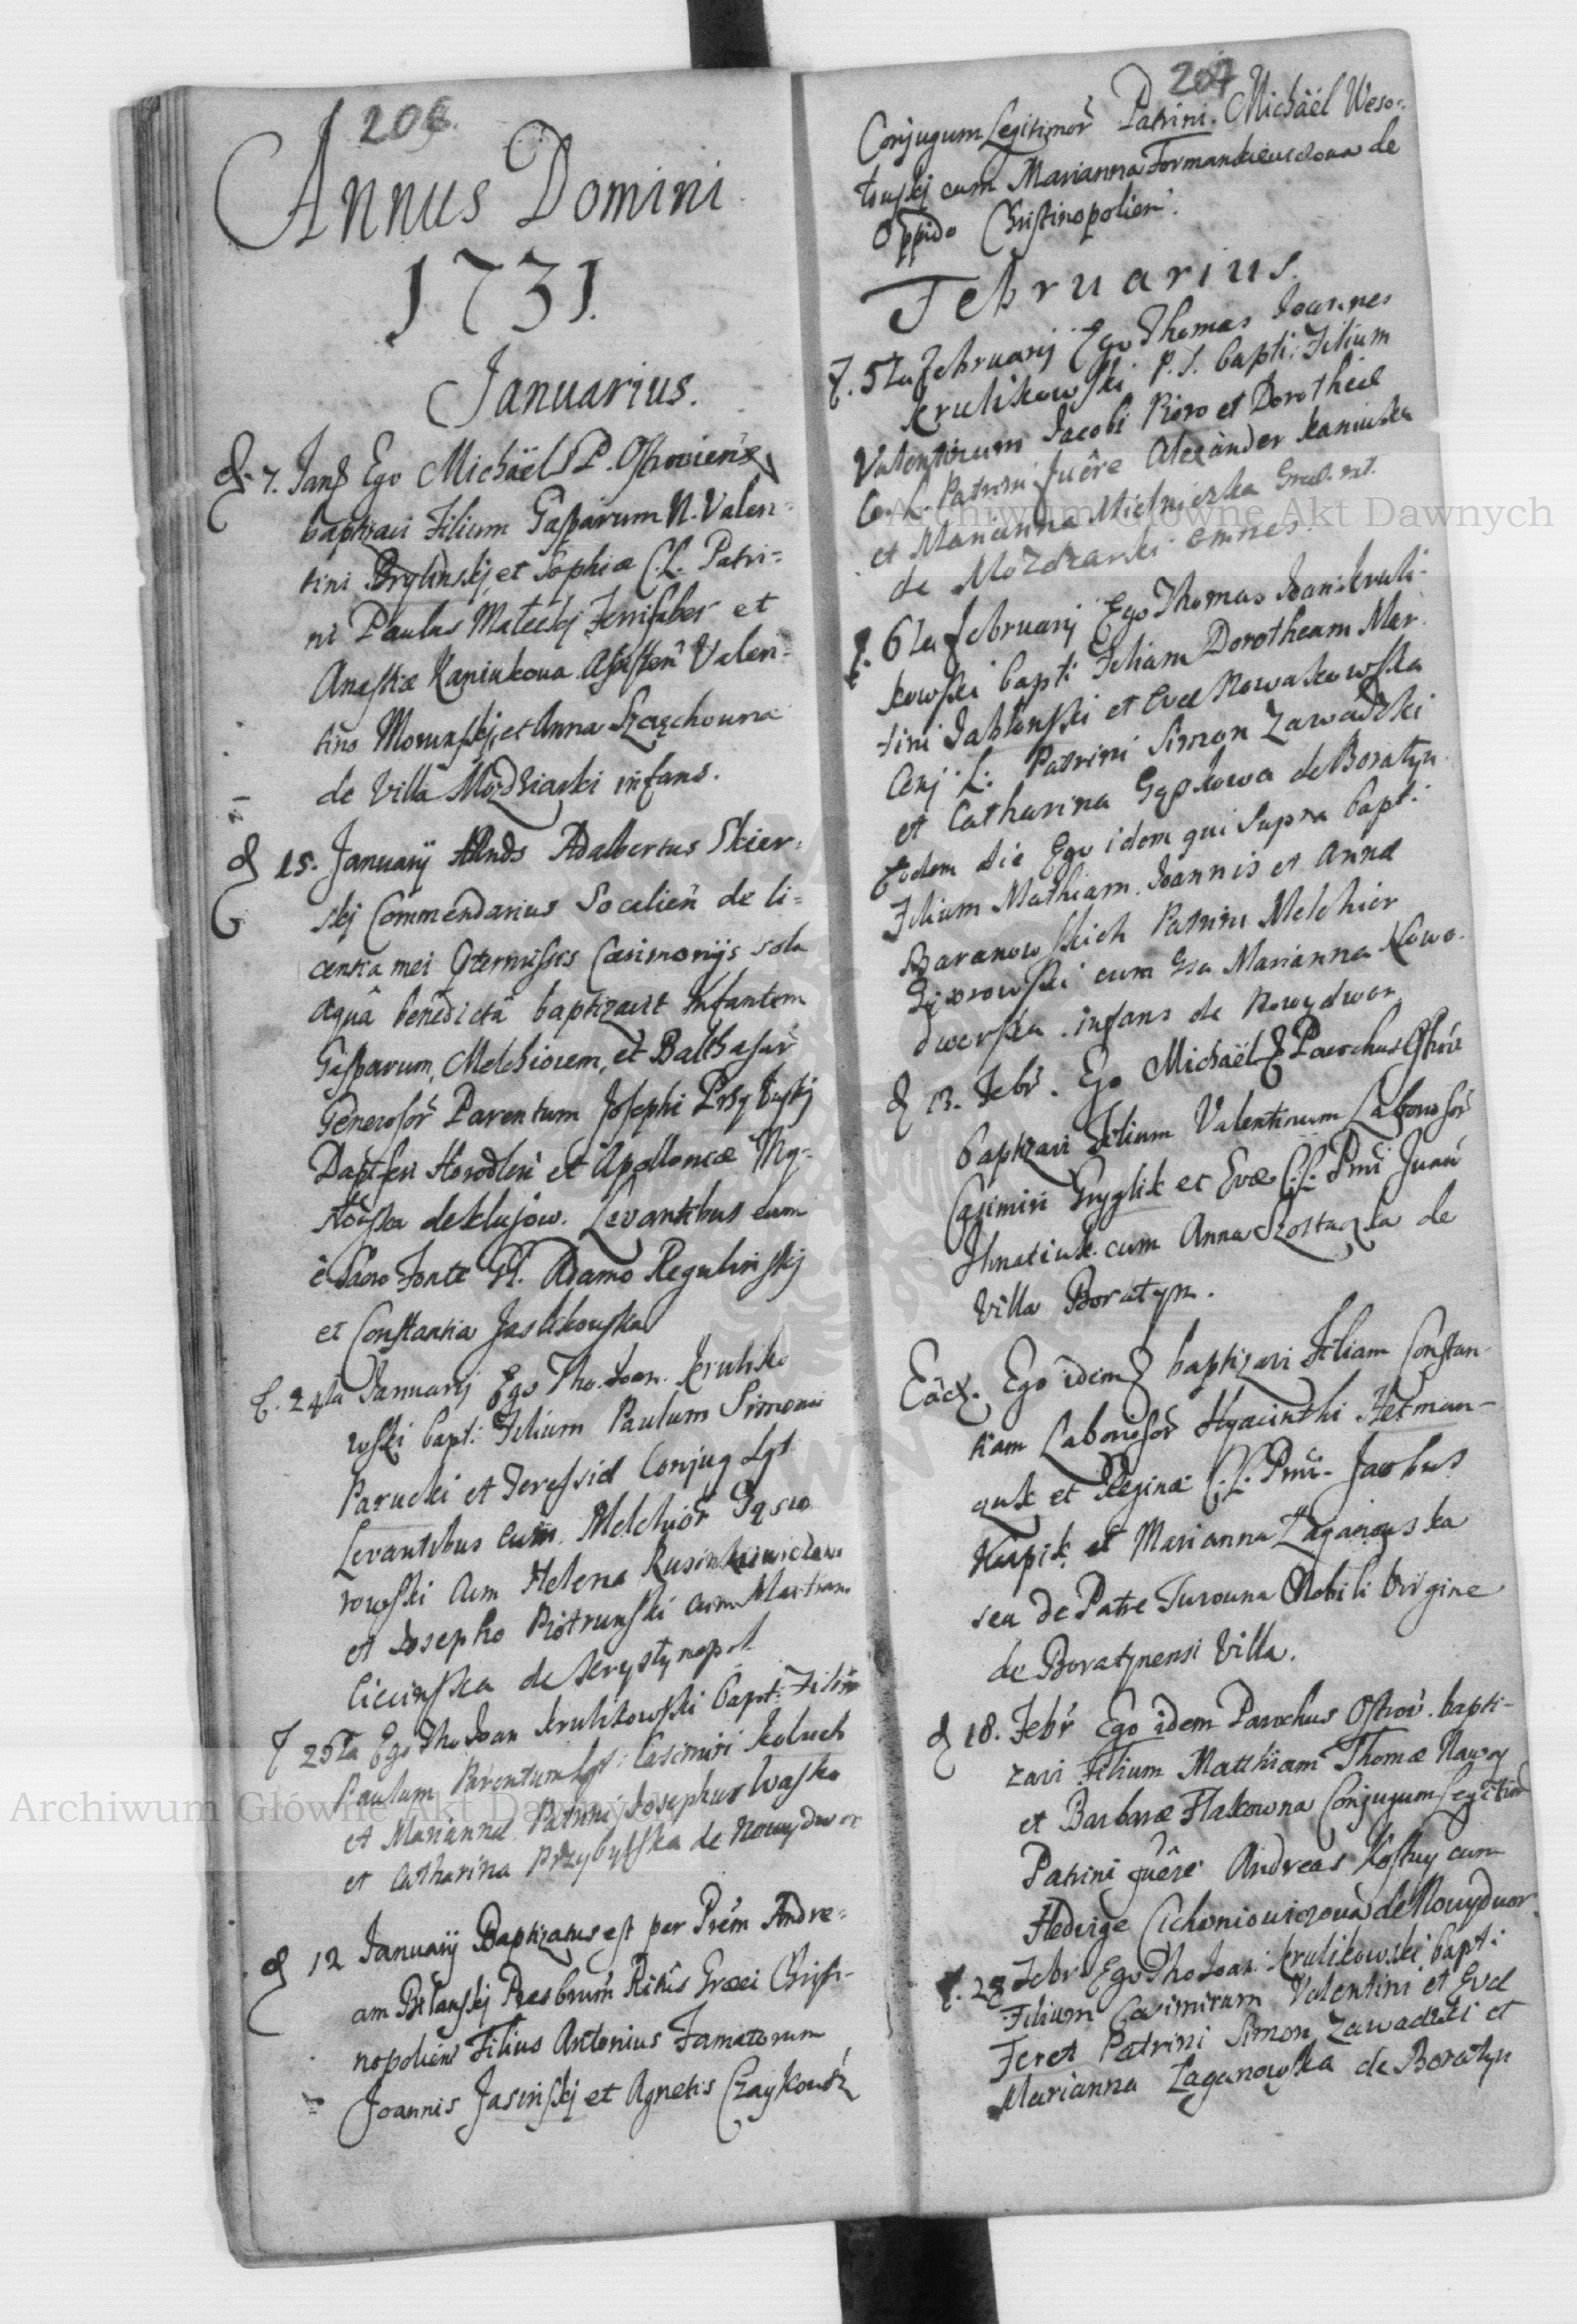 206.
Annus Domini
1731.
Januarius.
d. 7. Jan Ego Michaël P. Ostroviens
baptizavi Filium Gasparum N. Valen=
tini Brylinskj et Sophiæ C.L. Patri=
ni Paulus Matecki Ferrifaber et
Anastiæ Kaniukowa Assisten Valen=
tino Morunskj et Anna
de Villa Mozdziarki infans.
d 15. Januarij Adalbertus Skier=
skj Commendarius Socalien de li=
centia mei Cæremonijs sola
aquâ benedictâ baptizavit Infantem
Gasparum, Melchiorem, et Balthasar
Generosor Parentum Josephi Przyłuskj
Dapiferi Horodlen et Apolloniæ My=
de Klujow. Levantibus eum
è Sacro Fonte G. Adamo Regulinskj
et Constantia Jaslikouska
d. 24ta Januarij Ego Tho. Joan. Kruliko
wski bapt: Filium Paulum Simonis
Parucki et Teressiæ Conjug Lgt
Levantibus eum Melchior Gąsio
rowski cum Helena
et Josepho Piotrunski cum Marianna
Cicinska de Krystynopol
d 25ta Ego Tho Joan Krulikowski bapt: Filium
Paulum Parentum Lgt: Casimiri Koluch
et Mariannæ Patrini Josephus Wasko
et Catharina Przybylska de Nowydwor
d 12 Januarij Baptizatus est per Prêm Andre=
am Bilanskj Presbrum Ritûs Græci Christi-
nopolien Filius Antonius Famatorum
Joannis Jasinskj et Agnetis Czaykowsk
207
Conjugum Legitimor Patrini. Michaël Weso=
łouskj cum Marianna Formankieuiczoua de
Oppido Christinopolien.
Februarius.
d. 5ta februarij Ego Thomas Joannes
Krulikowski. P. S. bapti: Filium
Valentinum Jacobi Pioro et Dorotheæ
C. L. Patrini fuêre Alexander Kaniuska
et Marianna Mielniczka Græc. rit.
de Mozdzarki omnes.
d. 6ta februarij Ego Thomas Joan: Kruli-
kowski bapti Filiam Dorotheam Mar
tini Jabłonski et Evæ Nowakowska
Conj L: Patrini Simon Zawadzki
et Catharina Gąskowa de Boratyn
Eodem die Ego idem qui supra bapt:
Filium Mathiam. Joannis et Annæ
Baranowskich Patrini Melchior
Gąsiorowski cum Gsa Marianna Nowo-
dworska infans de Nowydwor
d 13. Febr. Ego Michaël Parochus Ostrov
baptizavi Filium Valentinum Laboriosor
Casimiri Gryglik et Evæ C.L. Prni Juan
Hnatiuk cum Anna Szostaczka de
Villa Boratyn.
Eâd. Ego idem baptizavi Filiam Constan-
tiam Laboriosor Hyacinthi Hetman-
quk et Reginæ C.L. Prni- Jacobus
Karpik et Marianna Zaganouska
seu de Patre Turouna Nobili Virgine
de Boratynensi Villa.
d 18. Febr Ego idem Parochus Ostrov. bapti-
zavi Filium Matthiam Thomæ Nawoy
et Barbaræ Flakowna Conjugum Legitim
Patrini fuêre Andreas Kostuy cum
Hedvige Cichoniowiczowa de Nowydwor
d. 28 Febr Ego Tho Joan: Krulikowski bapti:
Filium Casimirum Valentini et Evæ
Feret Patrini Simon Zawadzki et
Marianna Zaganowska de Boratyn
Archiwum Główne Akt Dawnych
Archiwum Główne Akt Dawnych